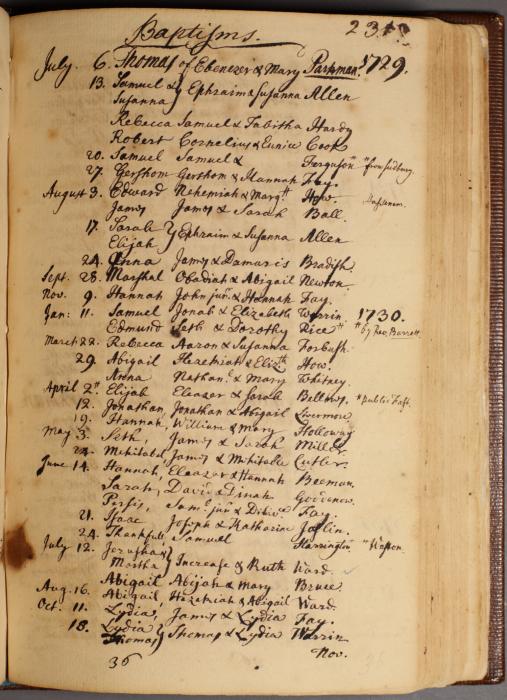 Baptisms. 231
July 6. Thomas of Ebenezer & Mary Parkman. 1729.
13. Samuel & } Ephraim & Susanna Allen
Susanna
Rebecca Samuel & Tabitha Hardy
Robert Cornelius & Eunice Cook
20. Samuel Samuel & Ferguson "from Sudbury.
27. Gershom Gershom & Hannah Fay.
August 3. Edward Nehemiah & Marg.tt How.
James James & Sarah Ball.
17. Sarah } Ephraim & Susanna Allen
Elijah
24. Anna James & Damaris Bradish.
Sept. 28. Marshal Obadiah & Abigail Newton.
Nov. 9. Hannah John jun.r & Hannah Fay.
Jan: 11. Samuel Jonah & Elizabeth Warrin 1730.
Edmund Seth & Dorothy Rice " " by Rev. Barrett
March 22. Rebecca Aaron & Susanna Forbush.
29. Abigail Hezekiah & Eliz.th How.
Anna Nathan.l & Mary Whetney.
April 2." Elijah Eleazer & Sarah Bellows. "public Fast.
12. Jonathan, Jonathan & Abigail Livermore.
19. Hannah, William & Mary Holloway
May 3. Seth, James & Sarah Miller.
24. Mehitabel James & Mehitable Cutler.
June 14. Hannah, Eleazer & Hannah Beeman.
Sarah, David & Dinah Goodenow.
Persis, Sam.l jun.r & Fay.
21. Isaac Joseph & Katharine Joslin.
24. Thankful Samuel Harrington "Weston.
July 12. Jerusha & } Increase & Ruth Ward.
Martha
Abigail Abijah & Mary Bruce.
Aug. 16. Abigail Hezekiah & Abigail Ward.
Oct. 11. Lydia, James & Lydia Fay.
18. Lydia } Thomas & Lydia Warrin
Thomas
36 Nov.